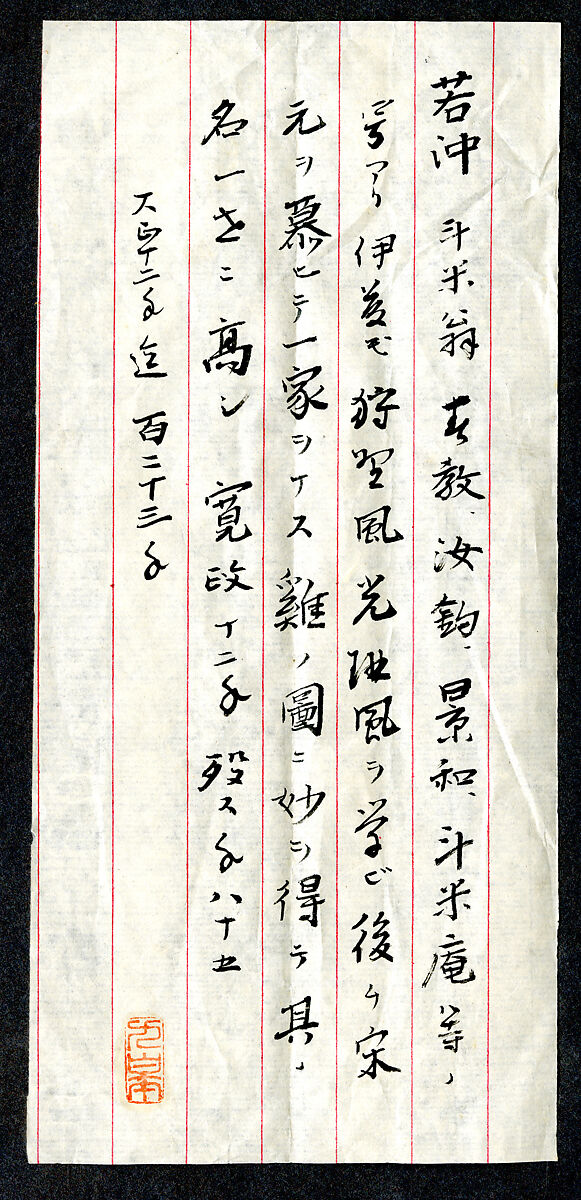 若冲 斗米翁 春教、汝鈞、景和、斗米庵等ノ
号アリ 伊藤氏 狩野風光琳風ヲ学ビ後チ宋
元ヲ慕ヒテ一家ヲナス 雞ノ圖ニ妙ヲ得テ其ノ
名一世ニ高シ 寛政十二年 歿ス年八十五
大正十二年迄 百二十三年